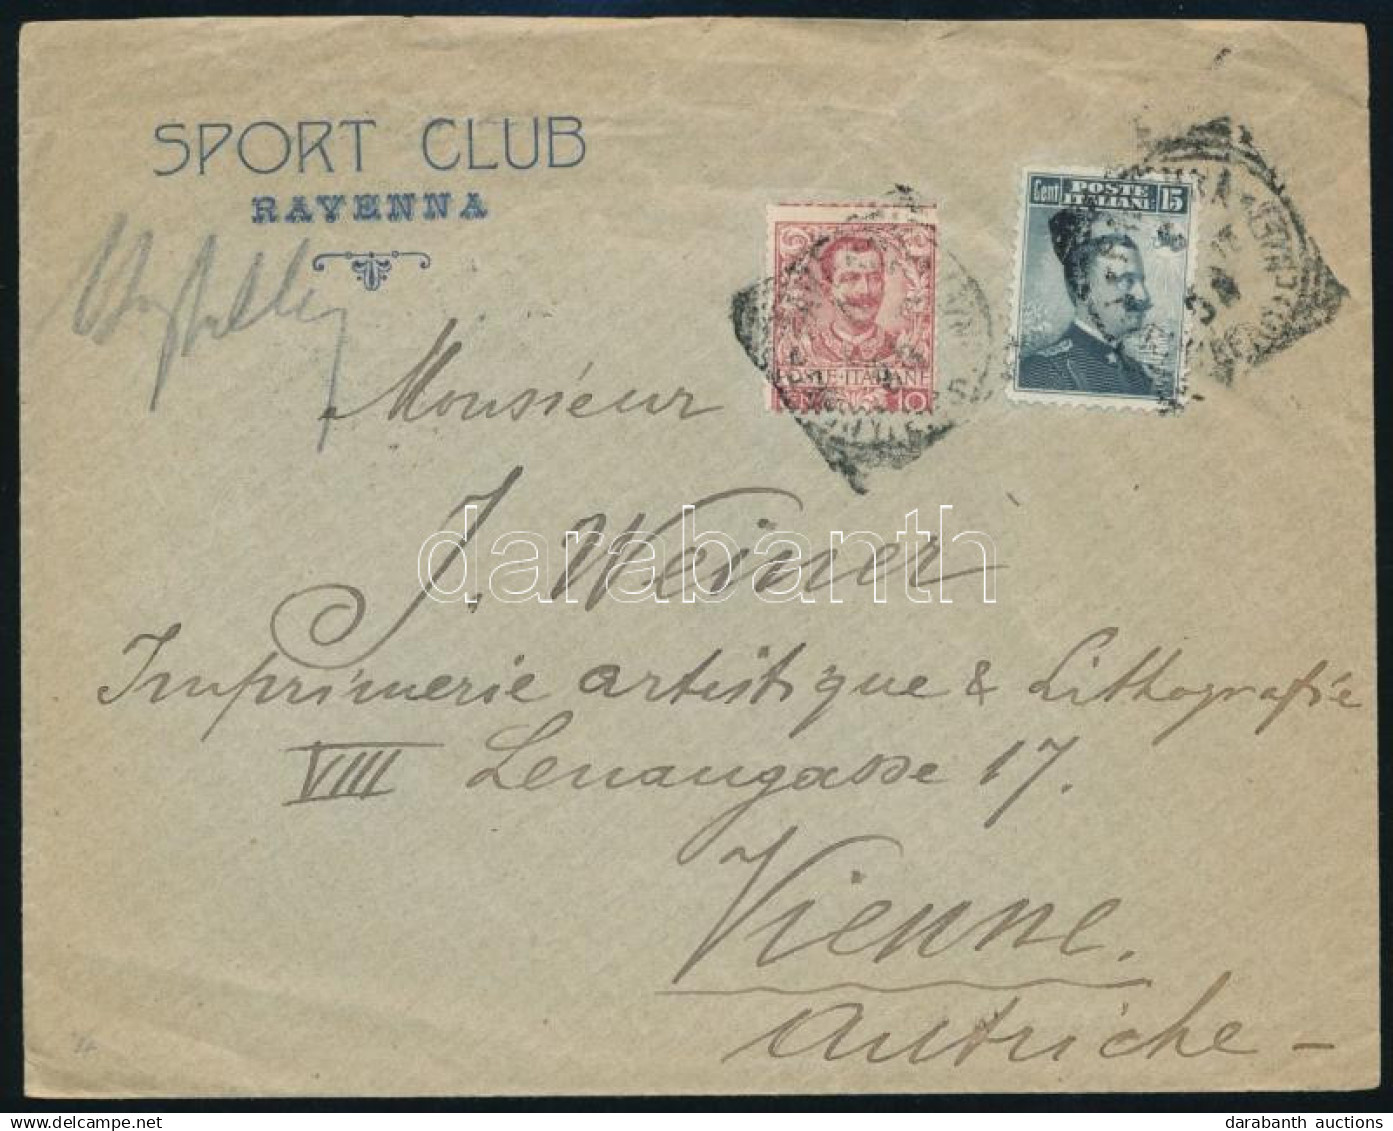 SPORT CLUB
RAVENNA
Cent POSTE ITALIANE 15
10
Monsieur
J. Weiner
Imprimerie artistique & Lithografie
VIII Lenaugasse 17.
Vienne.
Autriche -
darabanth
darabanth auctions